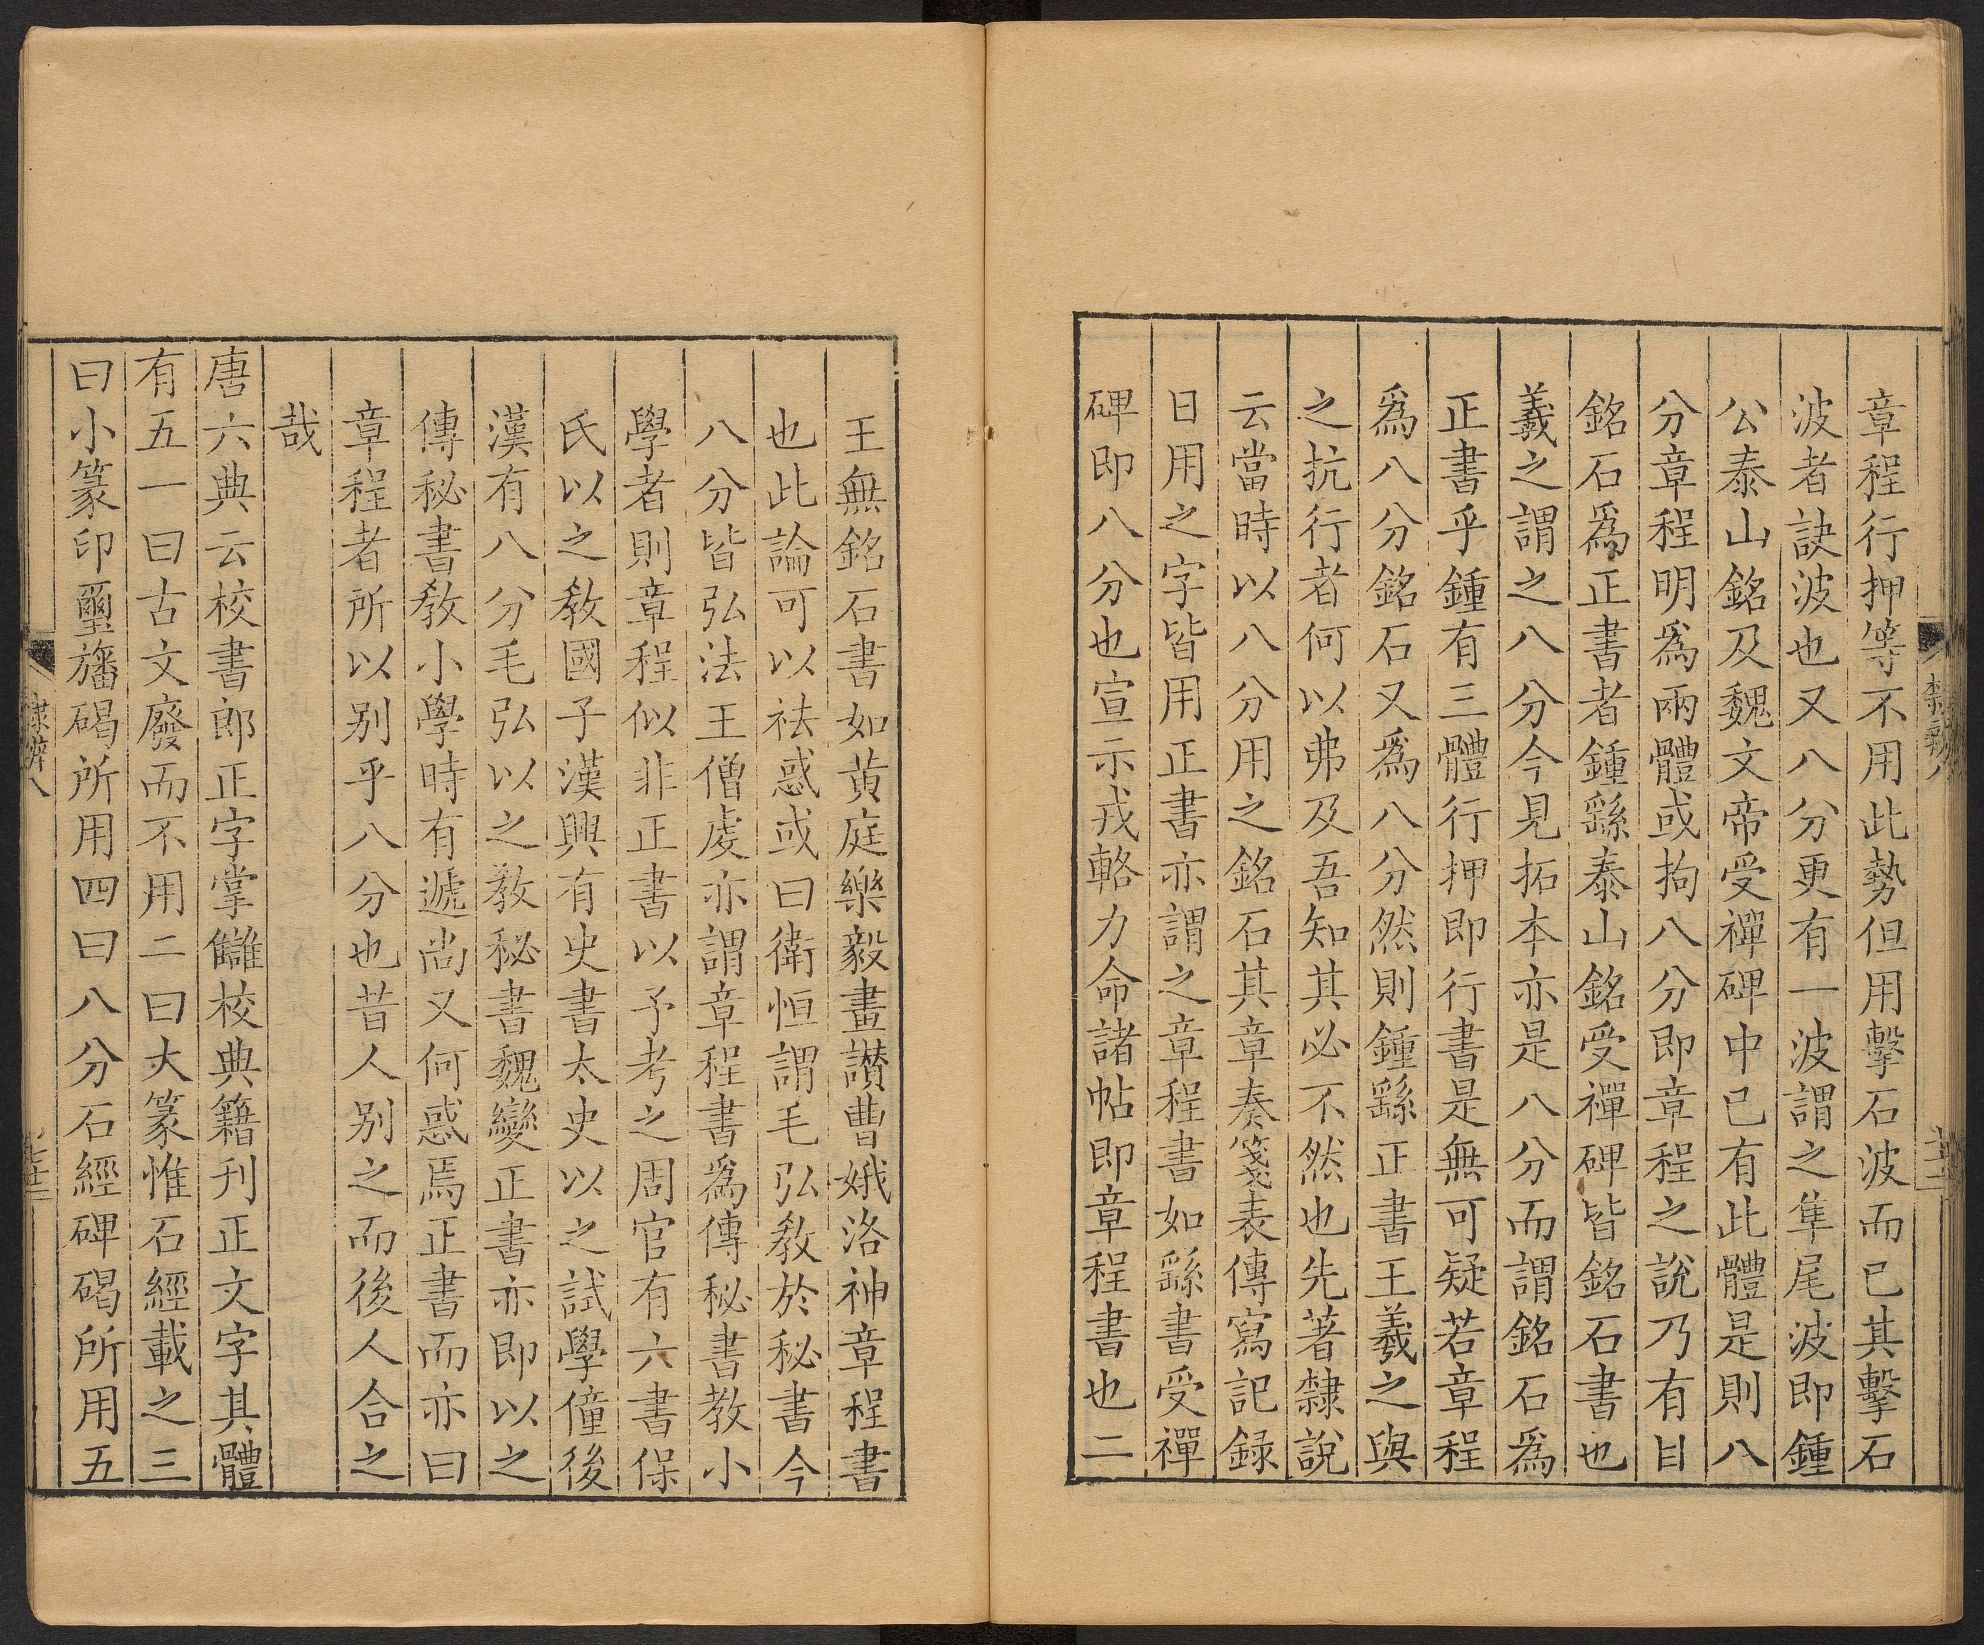 章程行押等不用此勢但用擊石波而已其擊石
波者訣波也又八分更有一波謂之隼尾波即鍾
公泰山銘及魏文帝受禪碑中已有此體是則八
分章程明爲兩體或拘八分即章程之說乃有目
銘石爲正書者鍾繇泰山銘受禪碑皆銘石書也
羲之謂之八分今見拓本亦是八分而謂銘石爲
正書乎鍾有三體行押即行書是無可疑若章程
爲八分銘石又爲八分然則鍾繇正書王羲之與
之抗行者何以弗及吾知其必不然也先著隸說
云當時以八分用之銘石其章奏箋表傳寫記録
日用之字皆用正書亦謂之章程書如繇書受禪
碑即八分也宣示戎輅力命諸帖即章程書也二
王無銘石書如黄庭樂毅畫讃曹娥洛神章程書
也此論可以祛惑或曰衛恒謂毛弘教於秘書今
八分皆弘法王僧虔亦謂章程書爲傳秘書教小
學者則章程似非正書以予考之周官有六書保
氏以之教國子漢興有史書太史以之試學僮後
漢有八分毛弘以之教秘書魏變正書亦即以之
傳秘書教小學時有遞尚又何惑焉正書而亦曰
章程者所以别乎八分也昔人别之而後人合之
哉
唐六典云校書郎正字掌讎校典籍刊正文字其體
有五一曰古文廢而不用二曰大篆惟石經載之三
曰小篆印璽旛碣所用四曰八分石經碑碣所用五
隸辨八